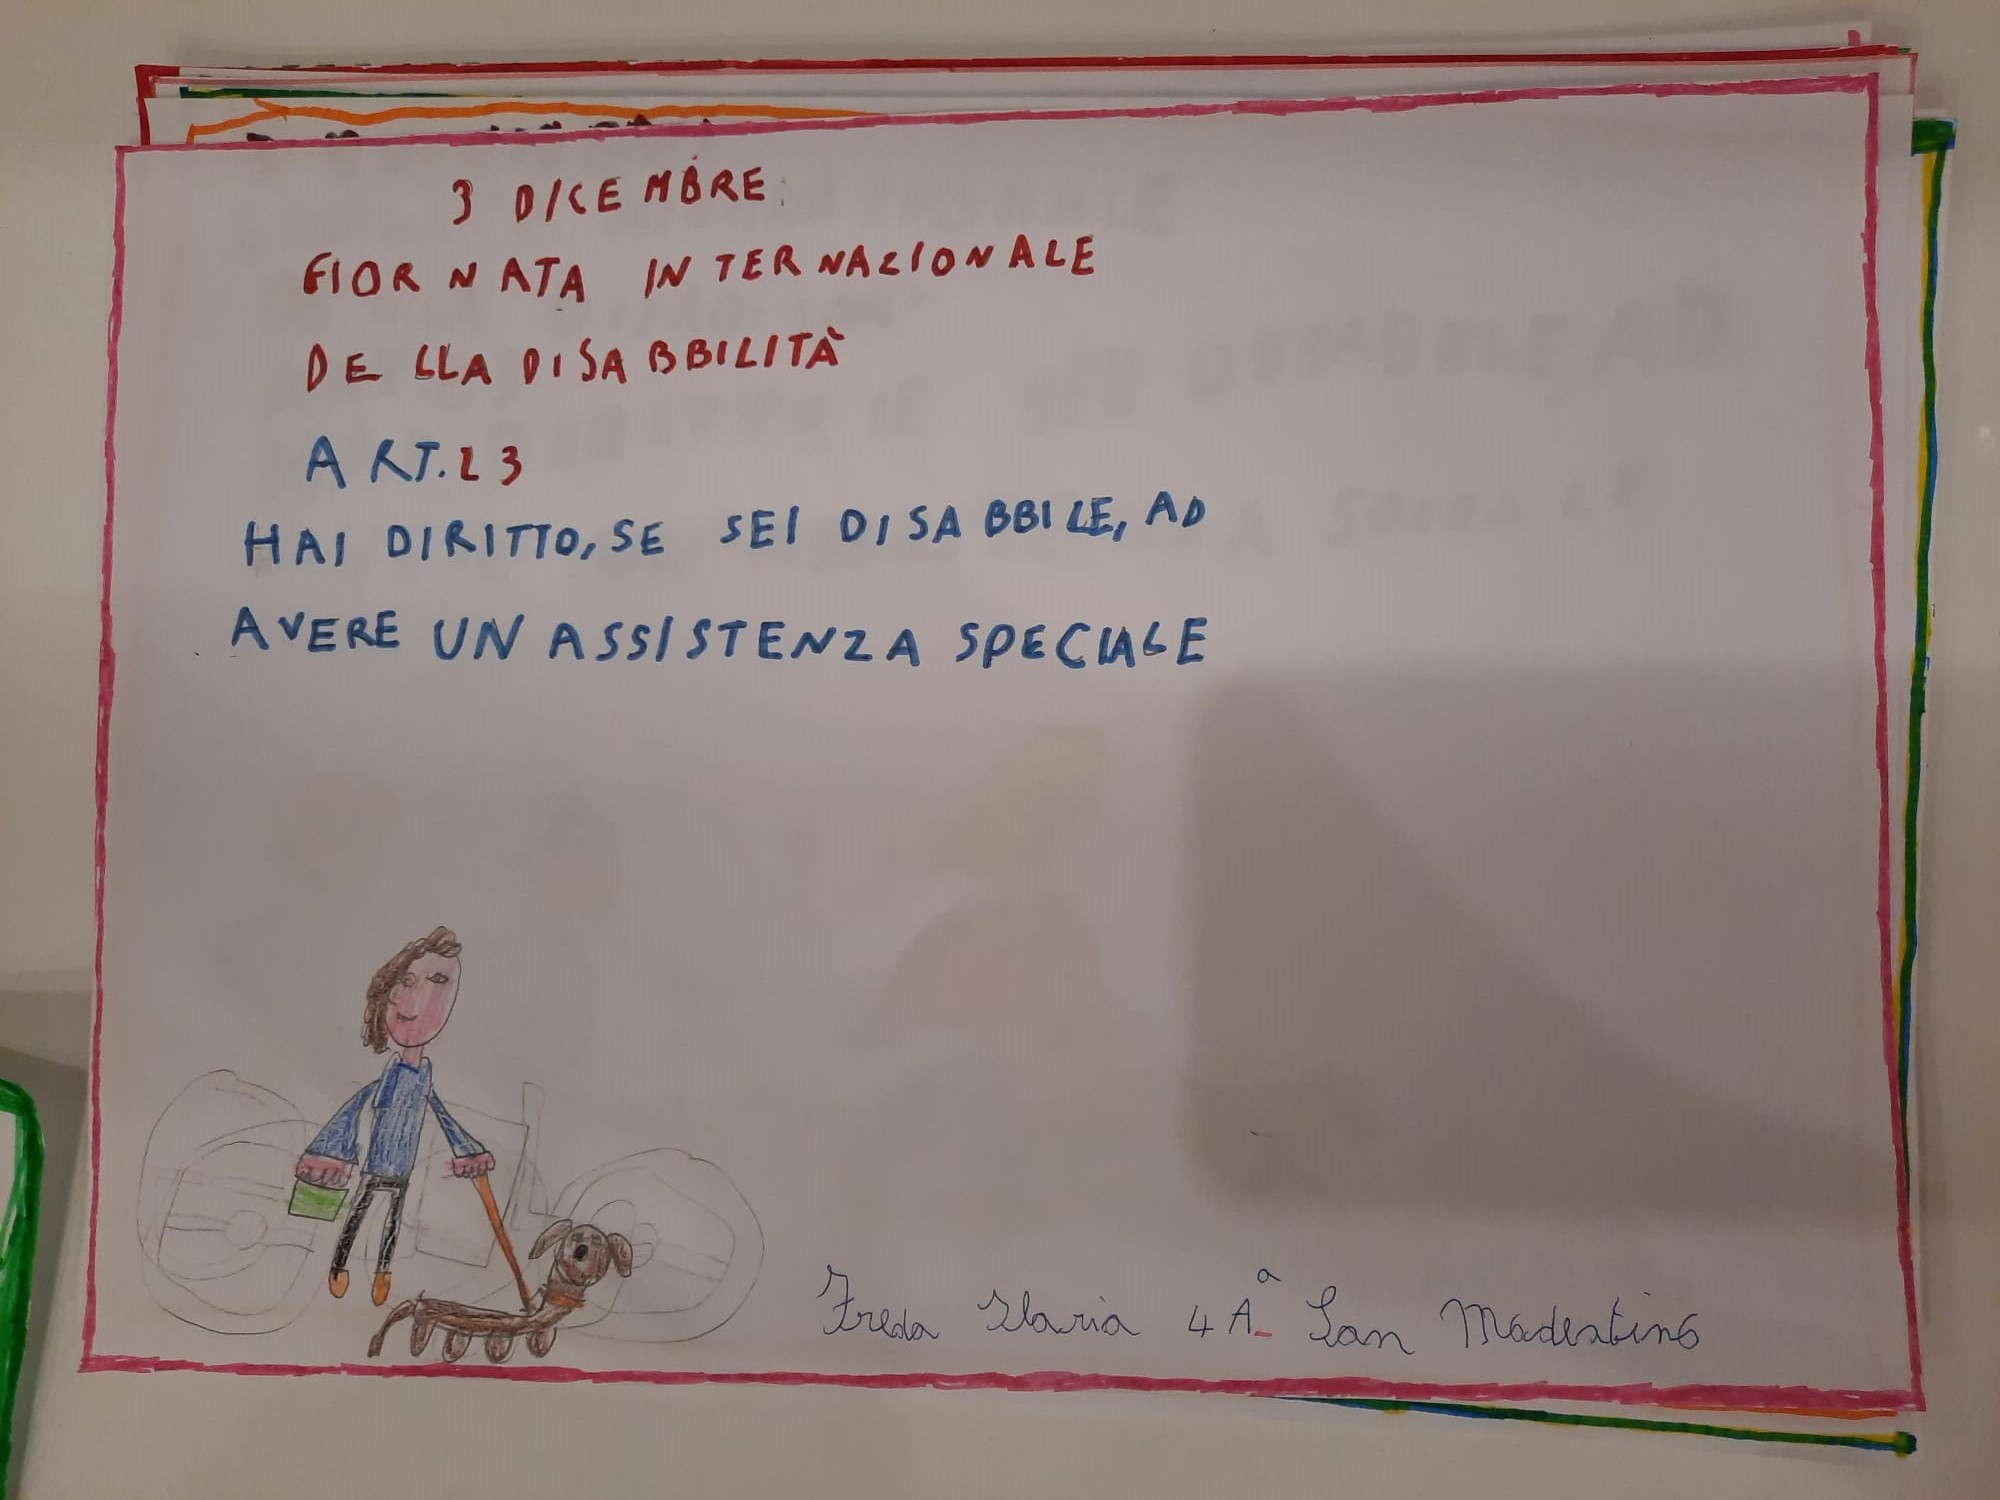 3 DICEMBRE
GIORNATA INTERNAZIONALE
DELLA DISABBILITÀ
ART.23
HAI DIRITTO, SE SEI DISABBILE, AD
AVERE UN ASSISTENZA SPECIALE
Freda Ilaria 4 Aª San Modestino